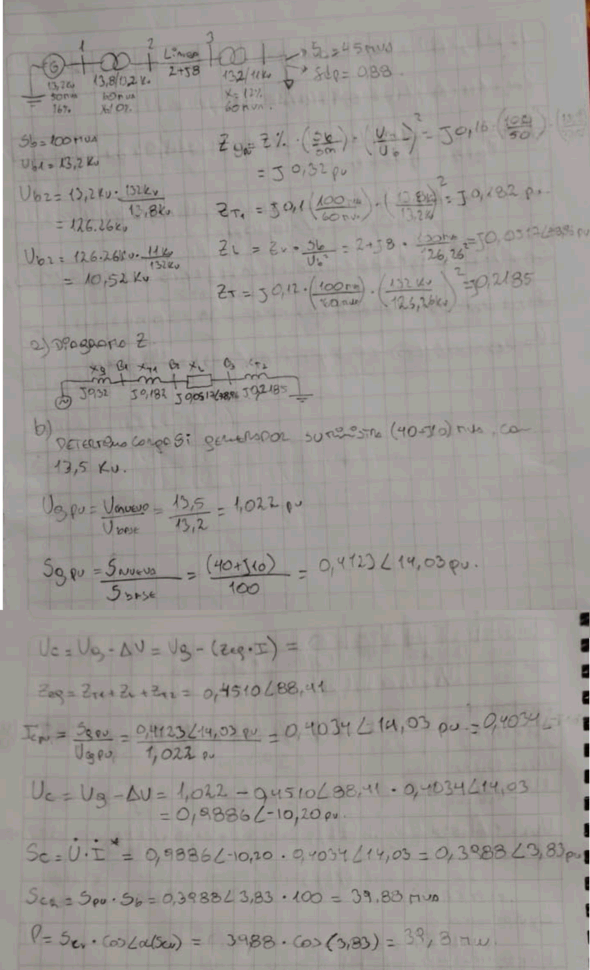 1 2 Línea 3 S=45mva
G 2+j8 fdp=0,88.
13,2kv 13,8/132kv 132/11kv
50mva 60mva x=12%
16% x=10% 60mva.
Sb=100mva
Ub1=13,2kv
Ub2=13,2kv·132kv/13,8kv
=126.26kv
Ub2=126.26kv·11kv/132kv
=10,52kv
Zgn=Z%·(Sb/Sm)·(U/Ub)²=j0,16·(100/50)
=j0,32 pu
ZT1=j0,1(100mva/60mva)·(13,8kv/13,2kv)²=j0,182 pu.
ZL=ZΩ·Sb/Ub²=2+j8·100mva/126,26²=
ZT=j0,12·(100mva/60mva)·(132kv/126,26kv)²=j0,2185
a) Diagrama Z
Xg B1 XT1 B2 XL B3 XT2
j0,32 j0,182 j0,2185
b)
Determine carga si generador suministra (40+j10) mva, con
13,5 kv.
Ug pu=Unuevo/Ubase=13,5/13,2=1,022 pu
Sg pu=Snuevo/Sbase=(40+j10)/100=0,4123∠14,03 pu.
Uc=Ug-ΔU=Ug-(Zeq·I)=
Zeq=ZT1+ZL+ZT2=0,4510∠88,41
Icpu=Sgpu/Ugpu=0,4123∠14,03 pu/1,022 pu=0,4034∠14,03 pu=0,4034∠
Uc=Ug-ΔU=1,022-0,4510∠88,41·0,4034∠14,03
=0,9886∠-10,20 pu.
Sc=U̇·İ*=0,9886∠-10,20·0,4034∠14,03=0,3988∠3,83 pu
Scr=Spu·Sb=0,3988∠3,83·100=39.88 mva
P=Scr·cos∠α(Scr)=3988·cos(3,83)=39,8 mw.